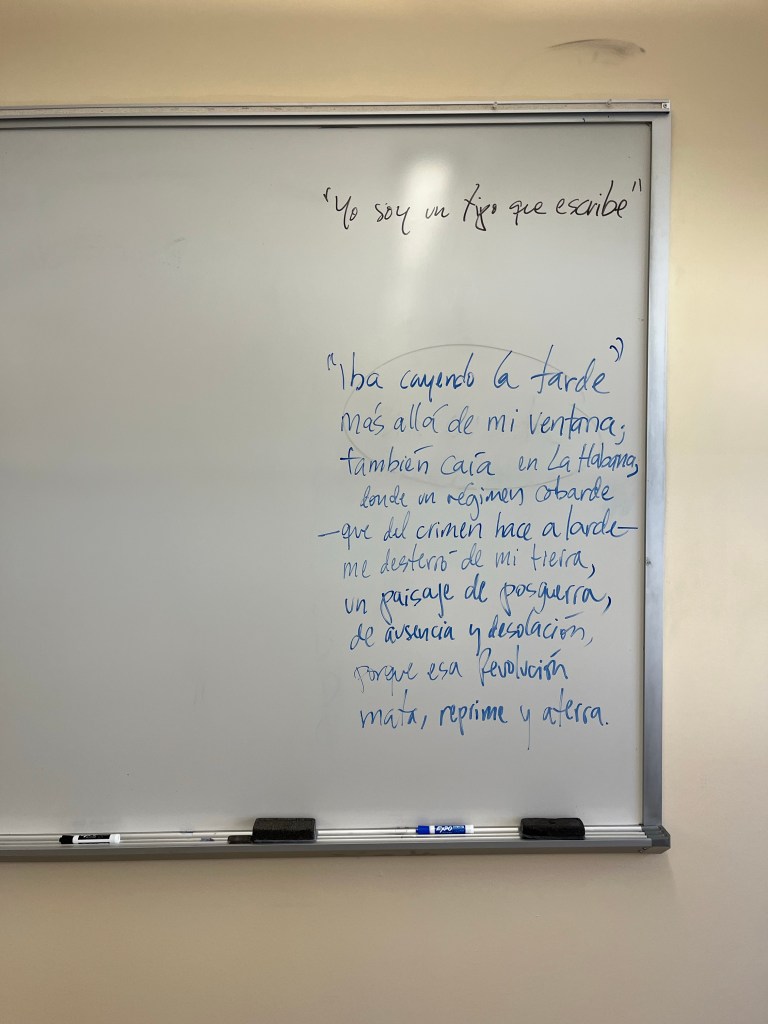 "Yo soy un tipo que escribe"
"Iba cayendo la tarde"
más allá de mi ventana;
también caía en La Habana,
donde un régimen cobarde
—que del crimen hace alarde—
me desterró de mi tierra,
un paisaje de posguerra,
de ausencia y desolación,
porque esa Revolución
mata, reprime y aterra.
EXPO